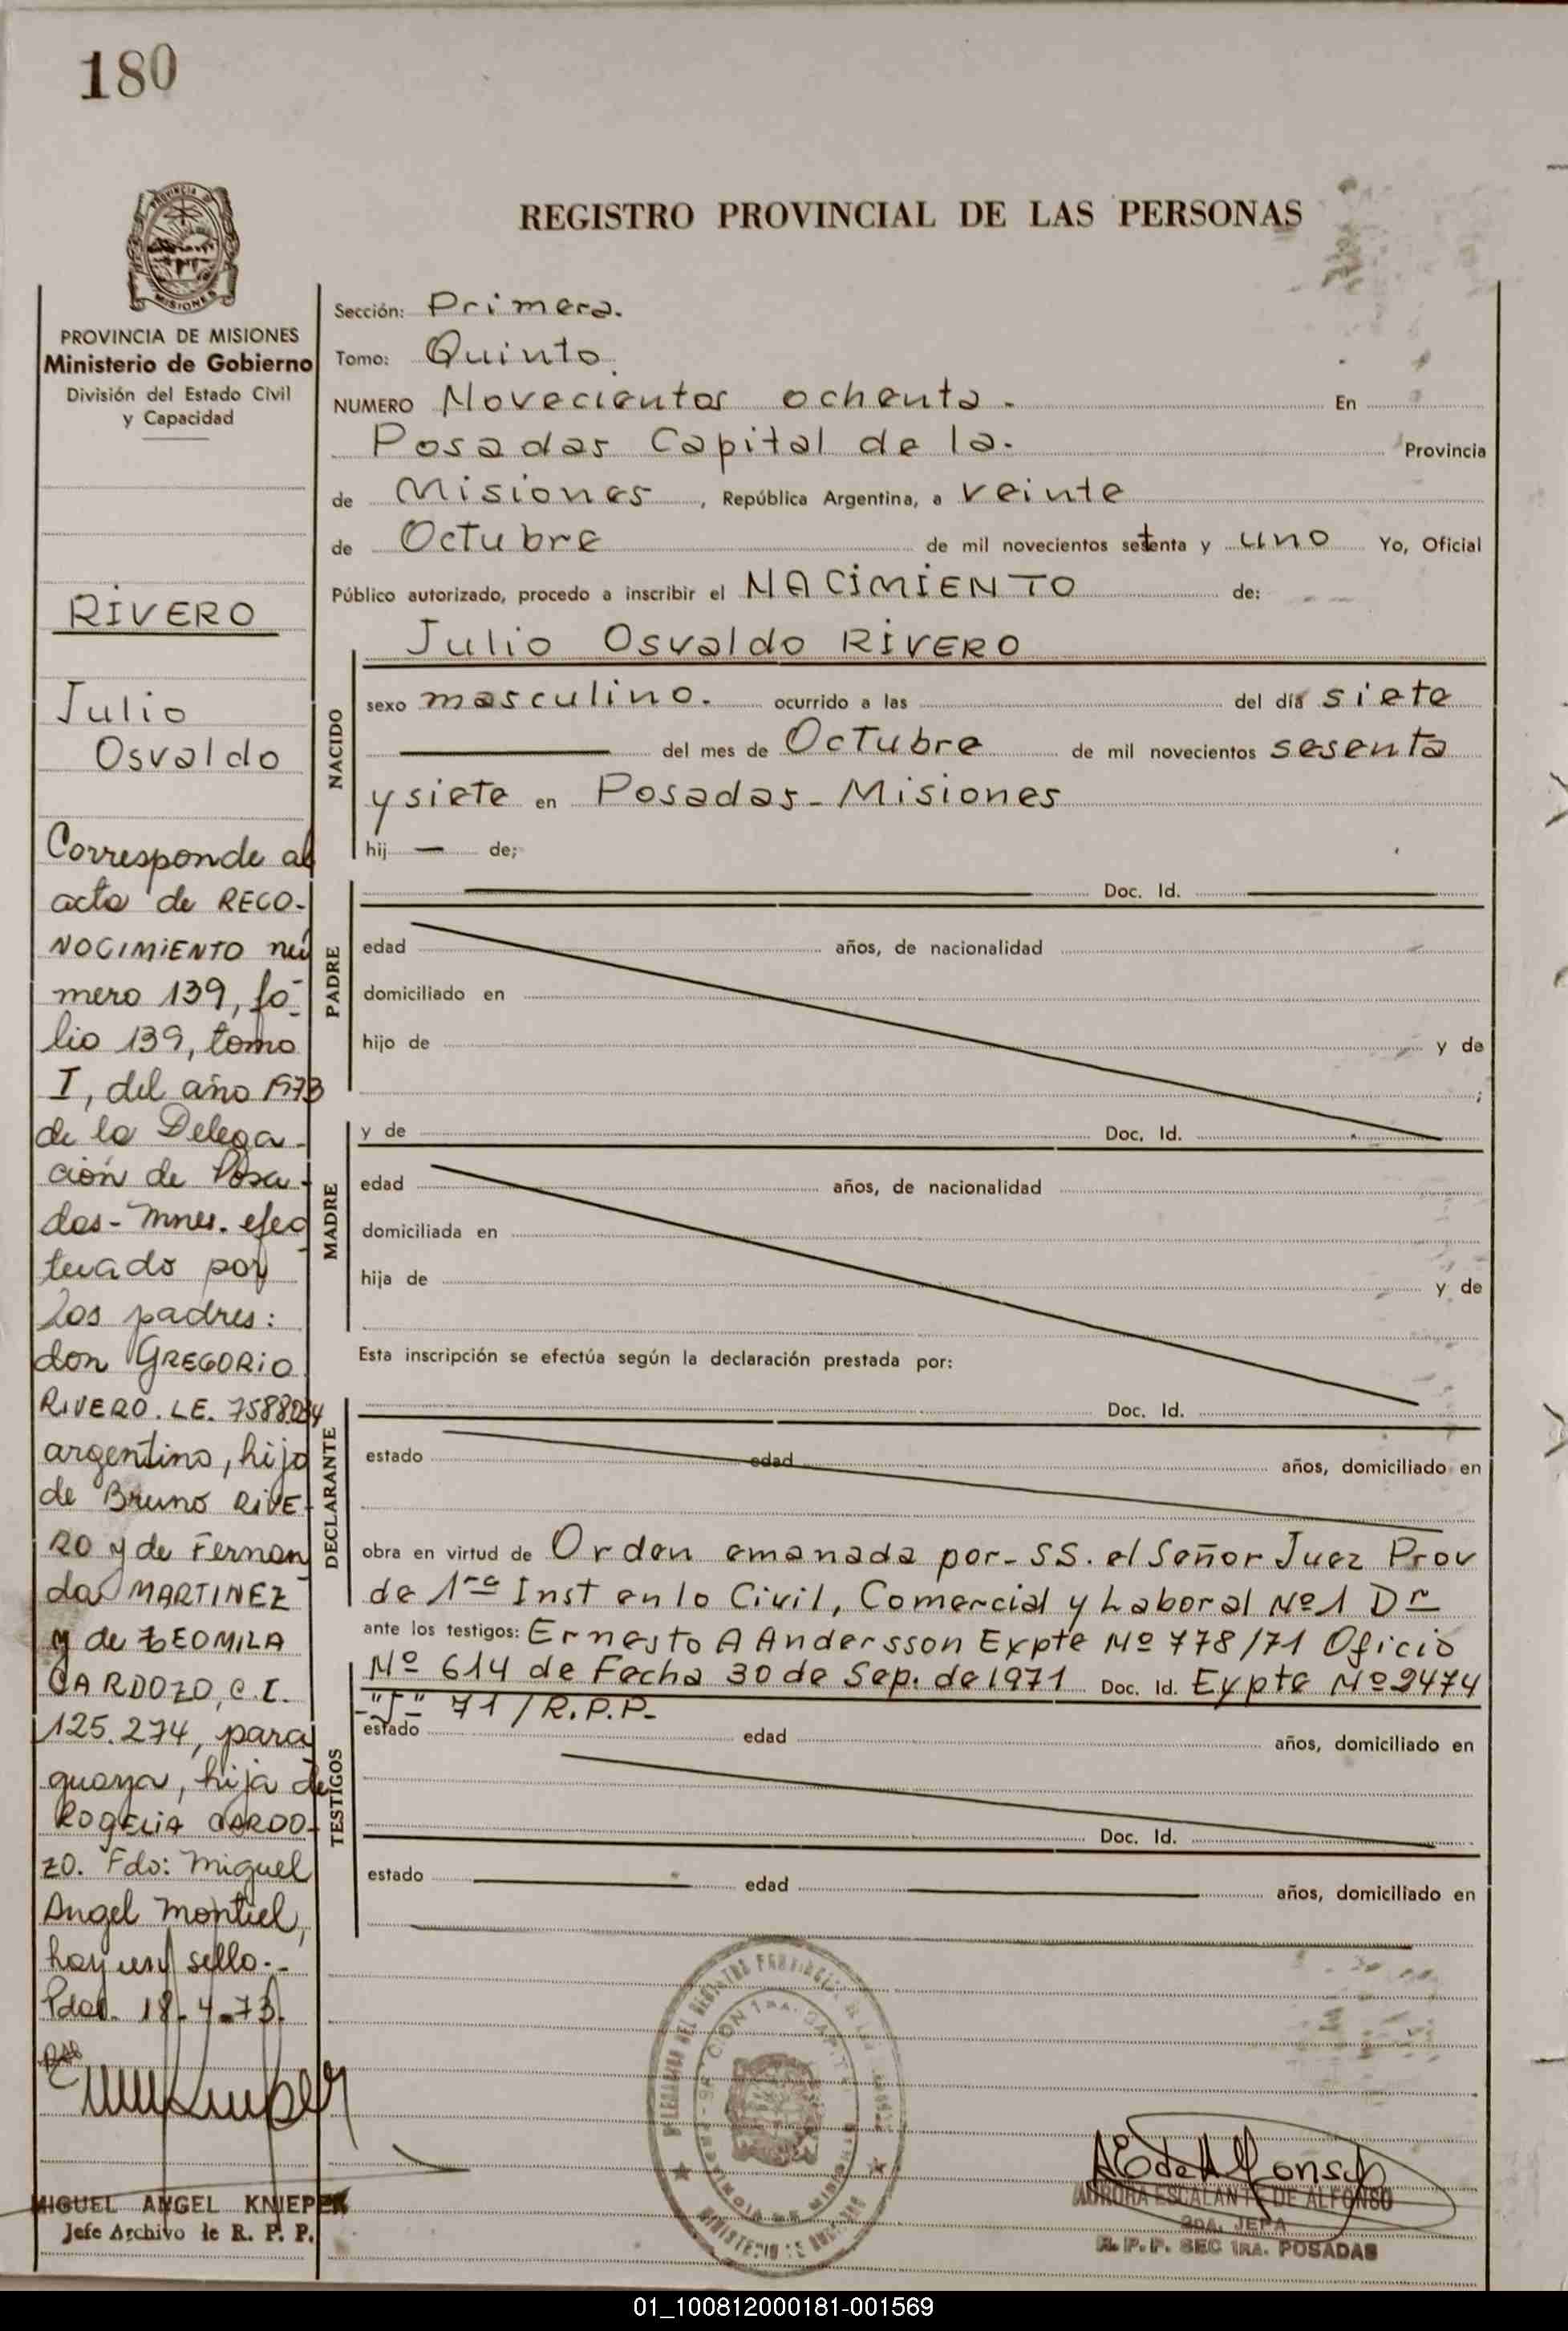 180
PROVINCIA DE MISIONES
Ministerio de Gobierno
División del Estado Civil
y Capacidad
RIVERO
Julio
Osvaldo
Corresponde al
acta de RECO-
NOCIMIENTO nú
mero 139, fó-
lio 139, tomo
I, del año 1973
de la Delega-
ción de Posa-
das - Mnes. efec
tuado por
los padres:
don GREGORIO
RIVERO. LE.
argentino, hijo
de Bruno RIVE-
RO y de Fernan
da MARTINEZ
y de LEOMILA
CARDOZO, C.I.
125.274, para
guaya, hija de
ROGELIA CARDO-
ZO. Fdo: Miguel
Angel Montiel,
hay un sello.-
Pdas. 18-4-73.
MIGUEL ANGEL KNIEPER
Jefe Archivo de R. P. P.
REGISTRO PROVINCIAL DE LAS PERSONAS
Sección: Primera.
Tomo: Quinto.
NUMERO Novecientos ochenta - En
Posadas Capital de la. Provincia
de Misiones, República Argentina, a veinte
de Octubre de mil novecientos setenta y uno Yo, Oficial
Público autorizado, procedo a inscribir el NACIMIENTO de:
Julio Osvaldo RIVERO
NACIDO
sexo masculino. ocurrido a las del día siete
del mes de Octubre de mil novecientos sesenta
y siete en Posadas - Misiones
hij — de;
PADRE
Doc. Id.
edad años, de nacionalidad
domiciliado en
hijo de y de
;
MADRE
y de Doc. Id.
edad años, de nacionalidad
domiciliada en
hija de y de
Esta inscripción se efectúa según la declaración prestada por:
DECLARANTE
Doc. Id.
estado edad años, domiciliado en
obra en virtud de Orden emanada por - SS. el Señor Juez Prov
de 1ra Inst en lo Civil, Comercial y Laboral Nº1 Dr
ante los testigos: Ernesto A Andersson Expte Nº 778/71 Oficio
Nº 614 de Fecha 30 de Sep. de 1971 Doc. Id. Expte Nº 2474
71/R.P.P.-
TESTIGOS
estado edad años, domiciliado en
Doc. Id.
estado edad años, domiciliado en
AURORA ESCALANTE DE ALFONSO
2DA. JEFA
R. P. P. SEC 1RA. POSADAS
01_100812000181-001569